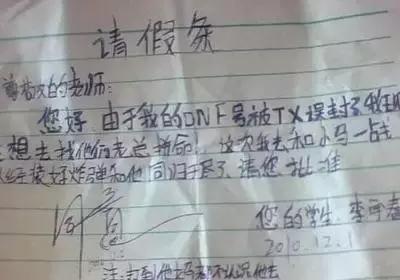 请假条
尊敬的老师:
您好,由于我的DNF号被TX误封了,我现
想去找他们老总拼命!这次我去和小马一战
经装好炸弹和他同归于尽了,请您批准
您的学生:李
2010.12.1
注: